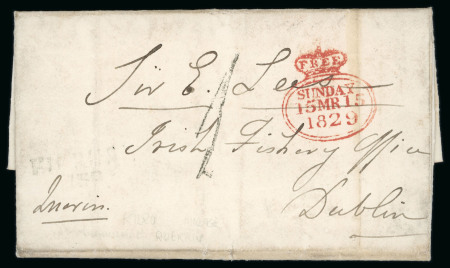 FREE
SUNDAY
15 MR 15
1829
Sir E. Lees
Irish Fishery Office
Dublin